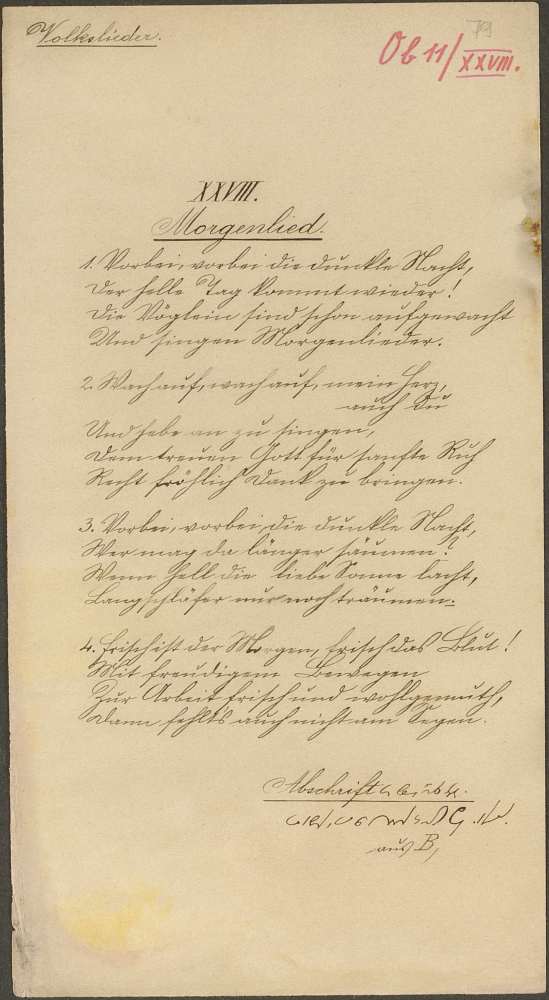 Volkslieder.
79
Ob 11/XXVIII.
XXVIII.
Morgenlied.
1. Vorbei, vorbei die dunkle Nacht,
Der helle Tag kommt wieder!
Die Vöglein sind schon aufgewacht
Und singen Morgenlieder.
2. Wach auf, wach auf, mein Herz,
auch du
Und hebe an zu singen,
Dem treuen Gott für sanfte Ruh
Recht fröhlich Dank zu bringen.
3. Vorbei, vorbei, die dunkle Nacht,
Wer mag da länger säumen?
Wenn hell die liebe Sonne lacht,
Langschläfer nur noch träumen.
4. Frisch ist der Morgen, frisch das Blut!
Mit freudigem Bewegen
Zur Arbeit frisch und wohlgemuth,
Dann fehlt's auch nicht am Segen.
Abschrift
aus B,